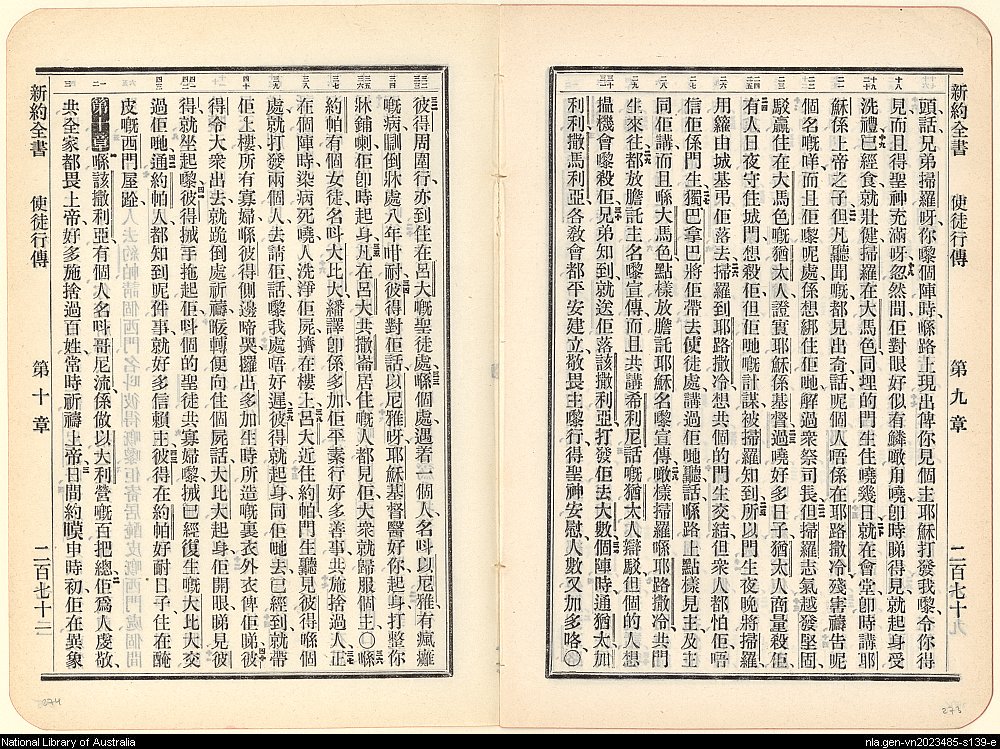 新約全書 使徒行傳 第九章 二百七十九
頭話兄弟掃羅呀你嚟個陣時喺路上現出俾你見個主耶穌打發我嚟令你得
見而且得聖神充滿呀忽然間佢對眼好似有鱗噉甩嘵卽時睇得見就起身受
洗禮已經食就壯健掃羅在大馬色同埋的門生住嘵幾日就在會堂卽時講耶
穌係上帝之子但凡聽聞嘅都見出奇話呢個人唔係在耶路撒冷殘害禱告呢
個名嘅咩而且佢嚟呢處係想綁住佢哋解過衆祭司長但掃羅志氣越發堅固
駁贏住在大馬色嘅猶太人證實耶穌係基督過嘵好多日子猶太人商量殺佢
有人日夜守住城門想殺佢但佢哋嘅計謀被掃羅知到所以門生夜晚將掃羅
用籮由城基弔佢落去掃羅到耶路撒冷想共個的門生交結但衆人都怕佢唔
信佢係門生獨巴拿巴將佢帶去使徒處講過佢哋聽話喺路上點樣見主及主
同佢講而且喺大馬色點樣放膽託耶穌名嚟宣傳噉樣掃羅喺耶路撒冷共門
生來往都放膽託主名嚟宣傳而且共講希利尼話嘅猶太人辯駁但個的人想
揾機會嚟殺佢兄弟知到就送佢落該撒利亞打發佢去大數個陣時通猶太加
利利撒馬利亞各敎會都平安建立敬畏主嚟行得聖神安慰人數又加多咯〇
彼得周圍行亦到住在呂大嘅聖徒處喺個處遇着一個人名呌以尼雅有瘋癱
嘅病瞓倒牀處八年咁耐彼得對佢話以尼雅呀耶穌基督醫好你起身打整你
牀鋪喇佢卽時起身凡在呂大共撒崙居住嘅人都見佢大衆就歸服個主〇喺
約帕有個女徒名呌大比大繙譯卽係多加佢平素行好多善事共施捨過人正
在個陣時染病死嘵人洗淨佢屍擠在樓上呂大近住約帕門生聽見彼得喺個
處就打發兩個人去請佢話嚟我處唔好遲彼得就起身同佢哋去已經到就帶
佢上樓所有寡婦喺彼得側邊啼哭攞出多加生時所造嘅裏衣外衣俾佢睇彼
得令大衆出去就跪倒處祈禱喉轉便向住個屍話大比大起身佢開眼睇見彼
得就坐起嚟彼得搣手拖起佢呌個的聖徒共寡婦嚟搣已經復生嘅大比大交
過佢哋通約帕人都知到呢件事就好多信賴主彼得在約帕好耐日子住在硝
皮嘅西門屋跧
第十章喺該撒利亞有個人名呌哥尼流係做以大利營嘅百把總佢爲人虔敬
共全家都畏上帝好多施捨過百姓常時祈禱上帝日間約嗼申時初佢在異象
新約全書 使徒行傳 第十章 二百七十二
274
273
National Library of Australia
nla.gen-vn2023485-s139-e